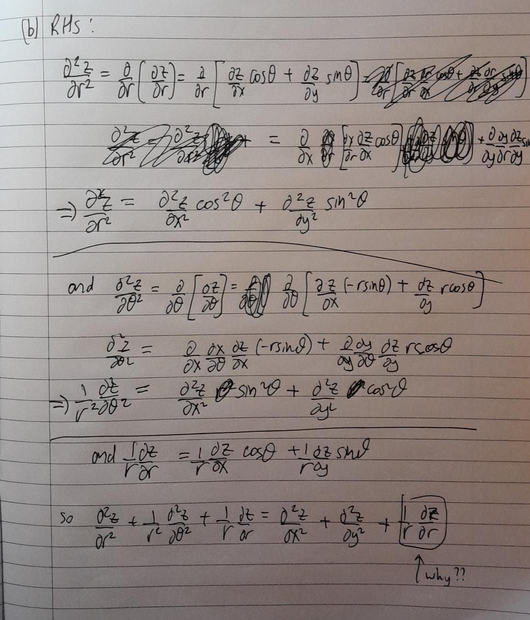 (b) RHS:
∂²z/∂r² = ∂/∂r [∂z/∂r] = ∂/∂r [∂z/∂x cosθ + ∂z/∂y sinθ]
= ∂/∂x [∂x/∂r ∂z/∂x cosθ] + ∂/∂y ∂y/∂r ∂z/∂y sin
⇒ ∂²z/∂r² = ∂²z/∂x² cos²θ + ∂²z/∂y² sin²θ
and ∂²z/∂θ² = ∂/∂θ [∂z/∂θ] = ∂/∂θ [∂z/∂x (-rsinθ) + ∂z/∂y rcosθ]
∂²z/∂θ² = ∂/∂x ∂x/∂θ ∂z/∂x (-rsinθ) + ∂/∂y ∂y/∂θ ∂z/∂y rcosθ
⇒ 1/r² ∂²z/∂θ² = ∂²z/∂x² sin²θ + ∂²z/∂y² cos²θ
and 1/r ∂z/∂r = 1/r ∂z/∂x cosθ + 1/r ∂z/∂y sinθ
so ∂²z/∂r² + 1/r² ∂²z/∂θ² + 1/r ∂z/∂r = ∂²z/∂x² + ∂²z/∂y² + 1/r ∂z/∂r
↑ why??